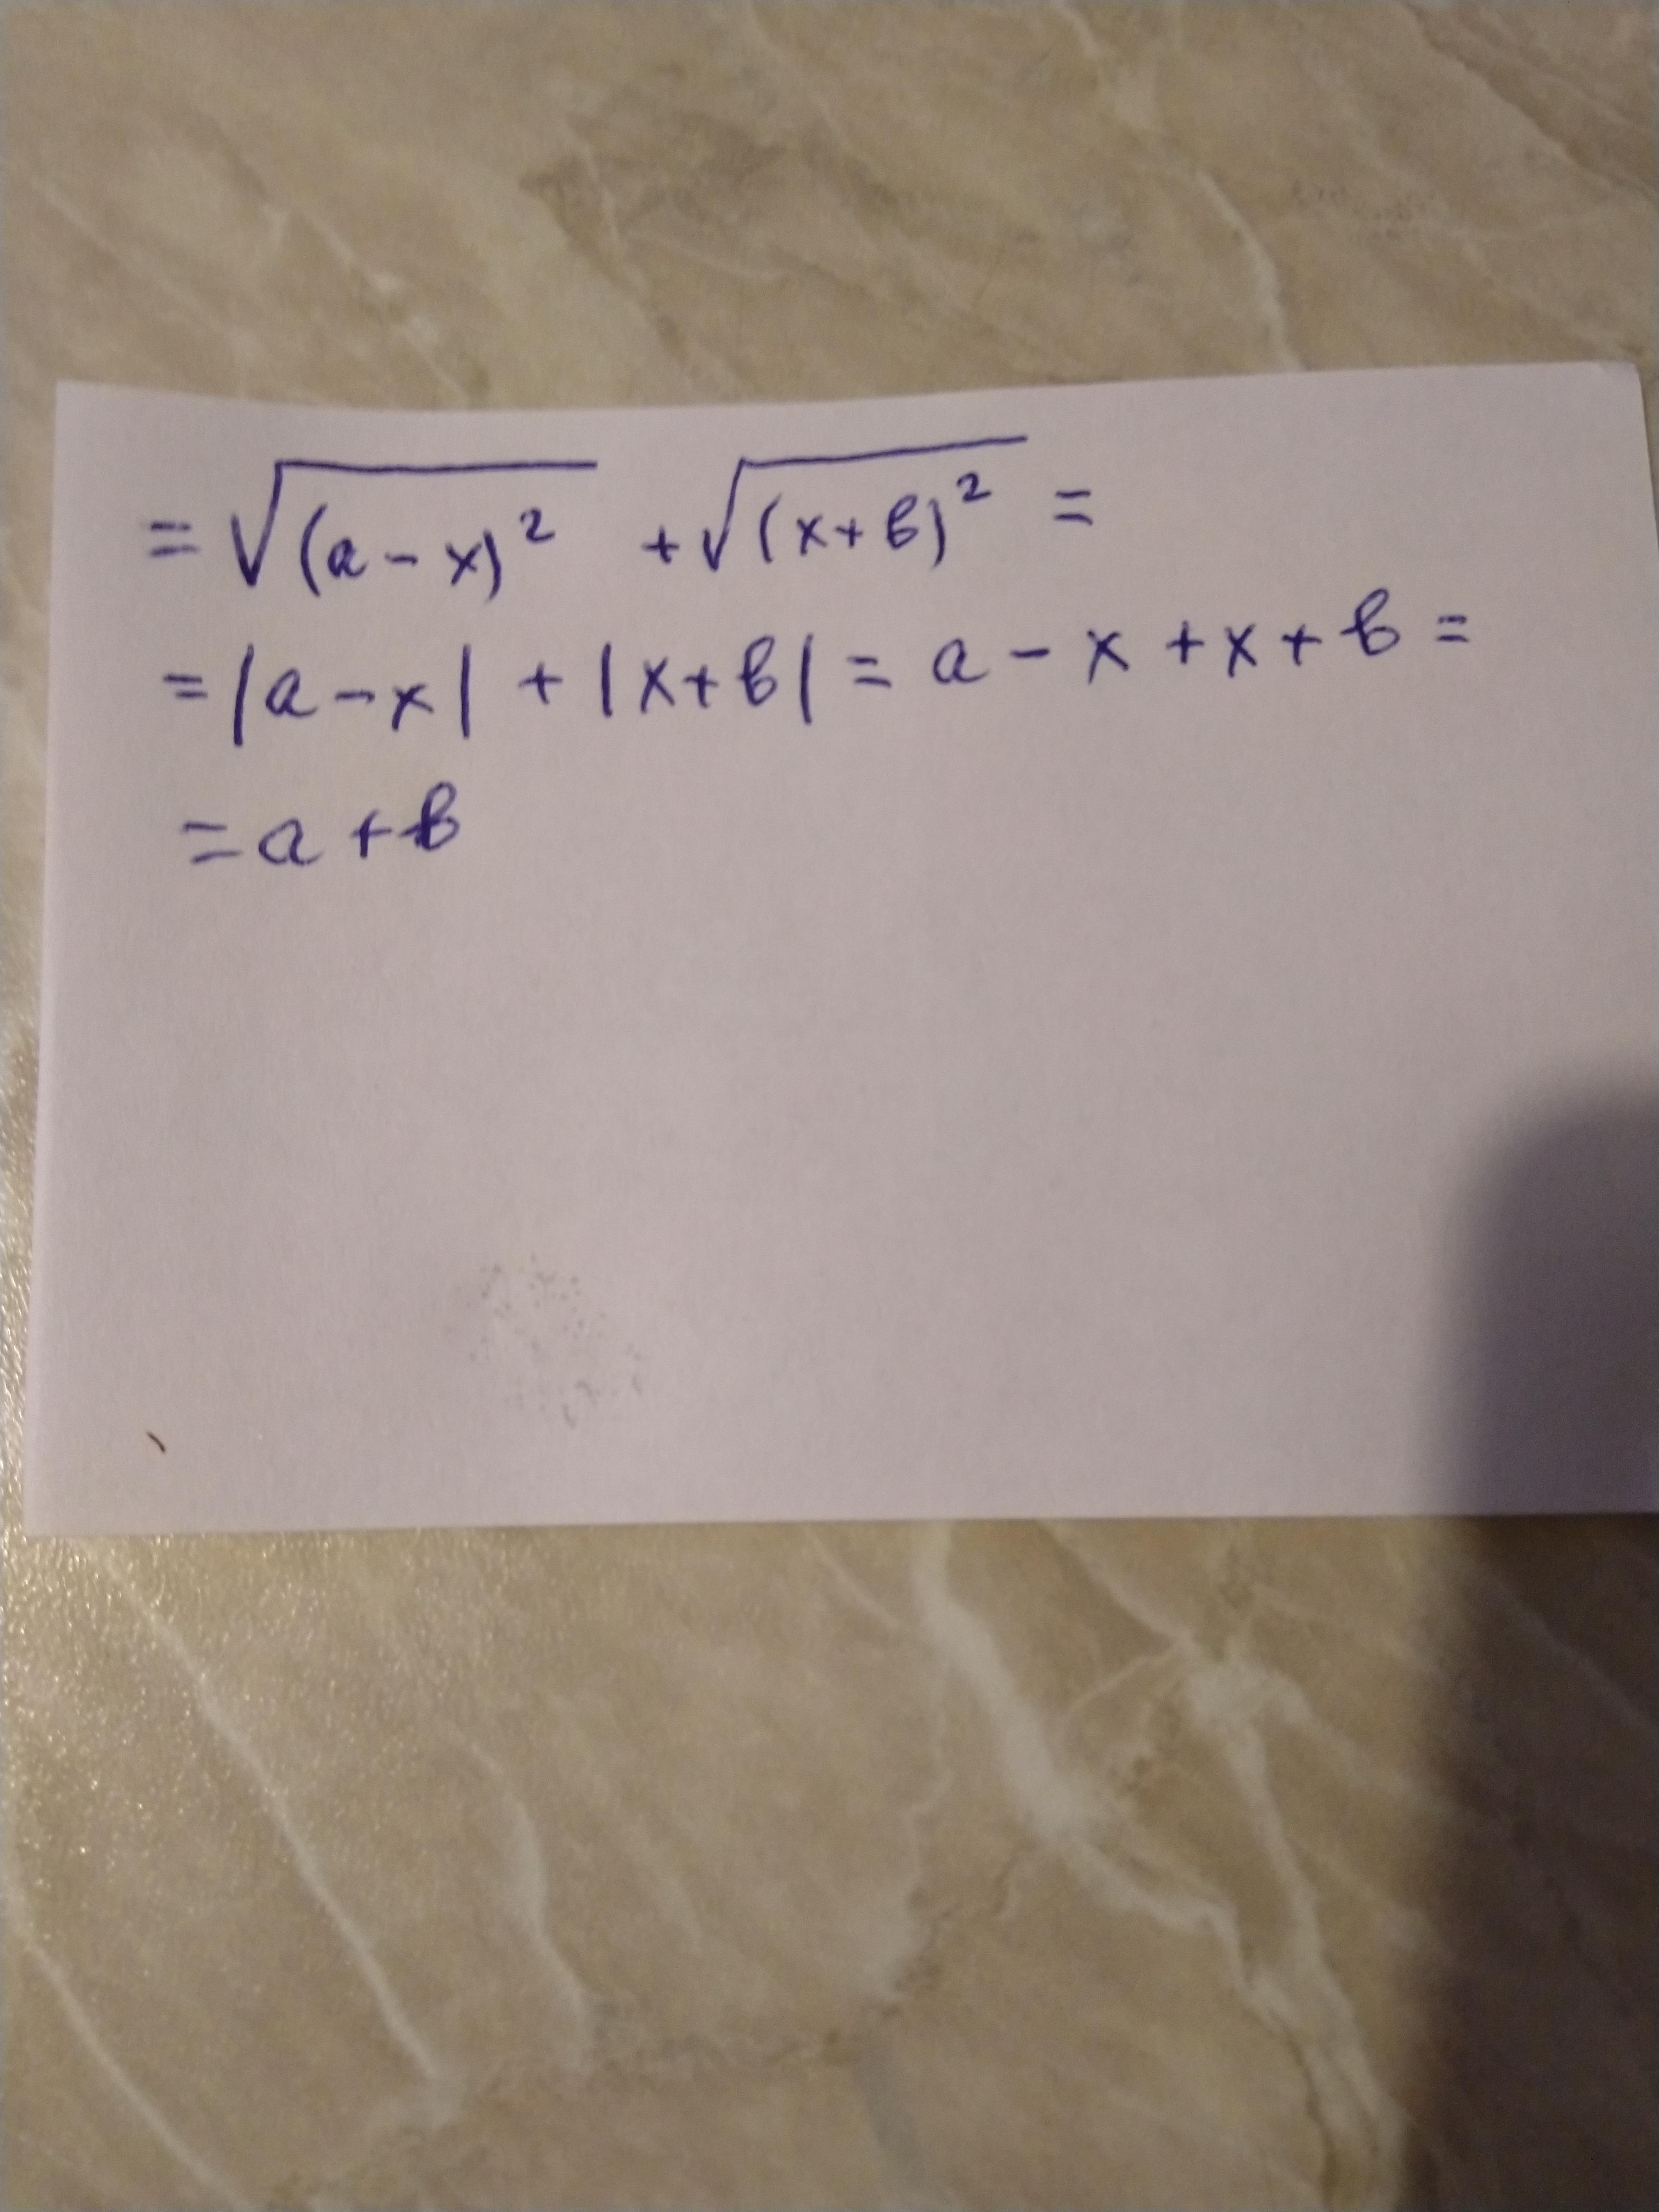 = √(a - x)² + √(x + b)² =
= |a - x| + |x + b| = a - x + x + b =
= a + b